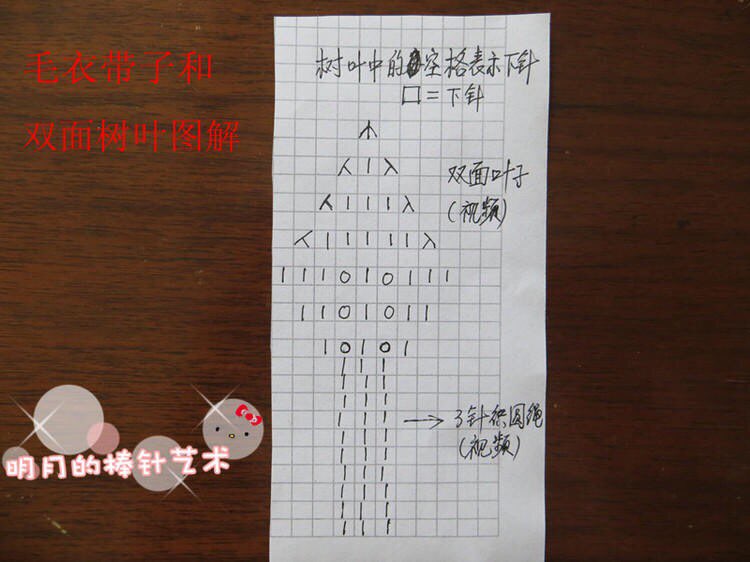 毛衣带子和
双面树叶图解
树叶中的空格表示下针
口=下针
双面叶子
(视频)
3针织圆绳
(视频)
明月的棒针艺术